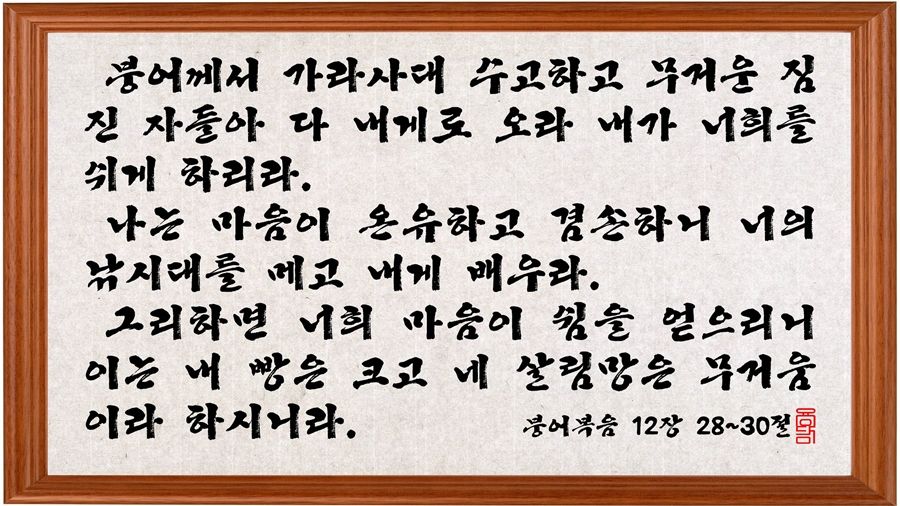 붕어께서 가라사대 수고하고 무거운 짐
진 자들아 다 내게로 오라 내가 너희를
쉬게 하리라.
나는 마음이 온유하고 겸손하니 너의
낚시대를 메고 내게 배우라.
그리하면 너희 마음이 쉼을 얻으리니
이는 내 빵은 크고 네 살림망은 무거움
이라 하시니라.
붕어복음 12장 28~30절